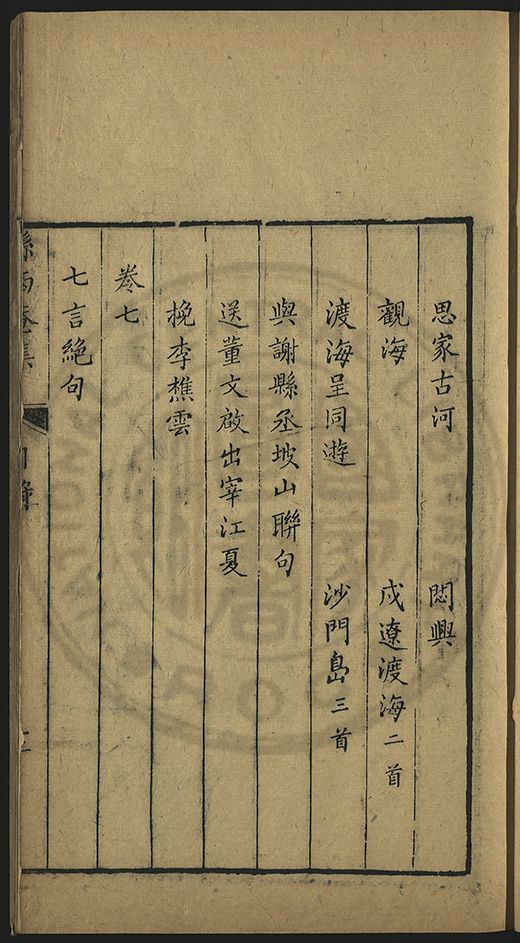 思家古河　悶興
觀海　戍遼渡海二首
渡海呈同遊　沙門島三首
與謝縣丞坡山聯句
送董文啟出宰江夏
挽李樵雲
卷七
七言絕句